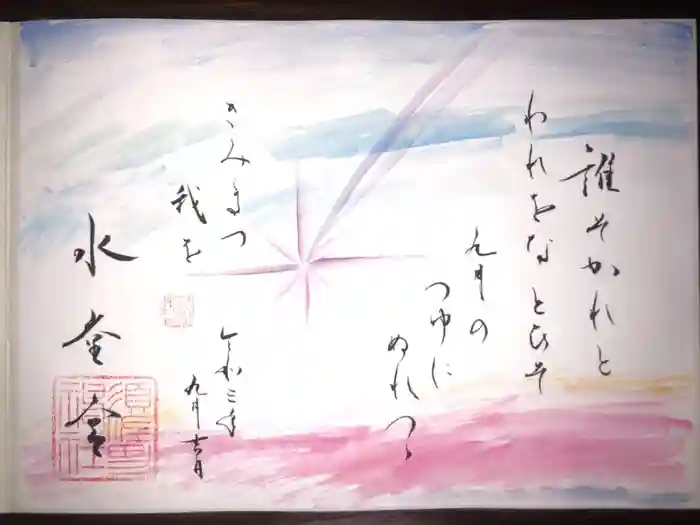 誰そかれと
われをなとひそ
九月の
つゆに
ぬれつゝ
きみまつ
我を
令和三年
九月吉日
水堂